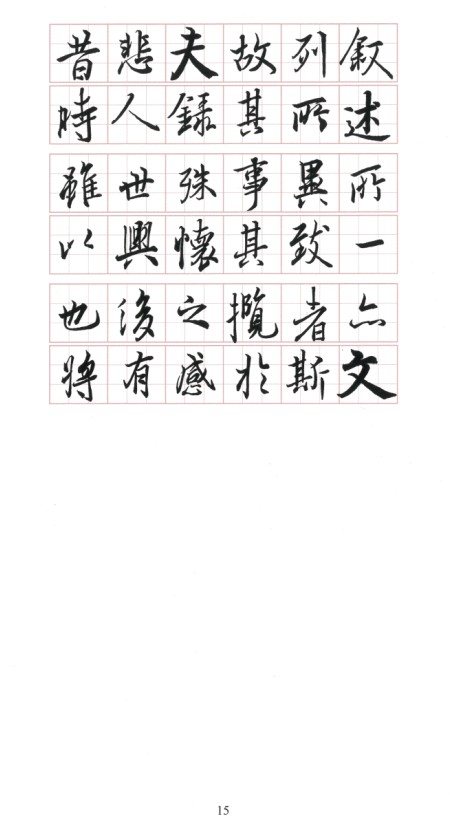 昔悲夫故列叙
時人録其所述
雖世殊事異所
以興懷其致一
也後之攬者亦
將有感於斯文
15